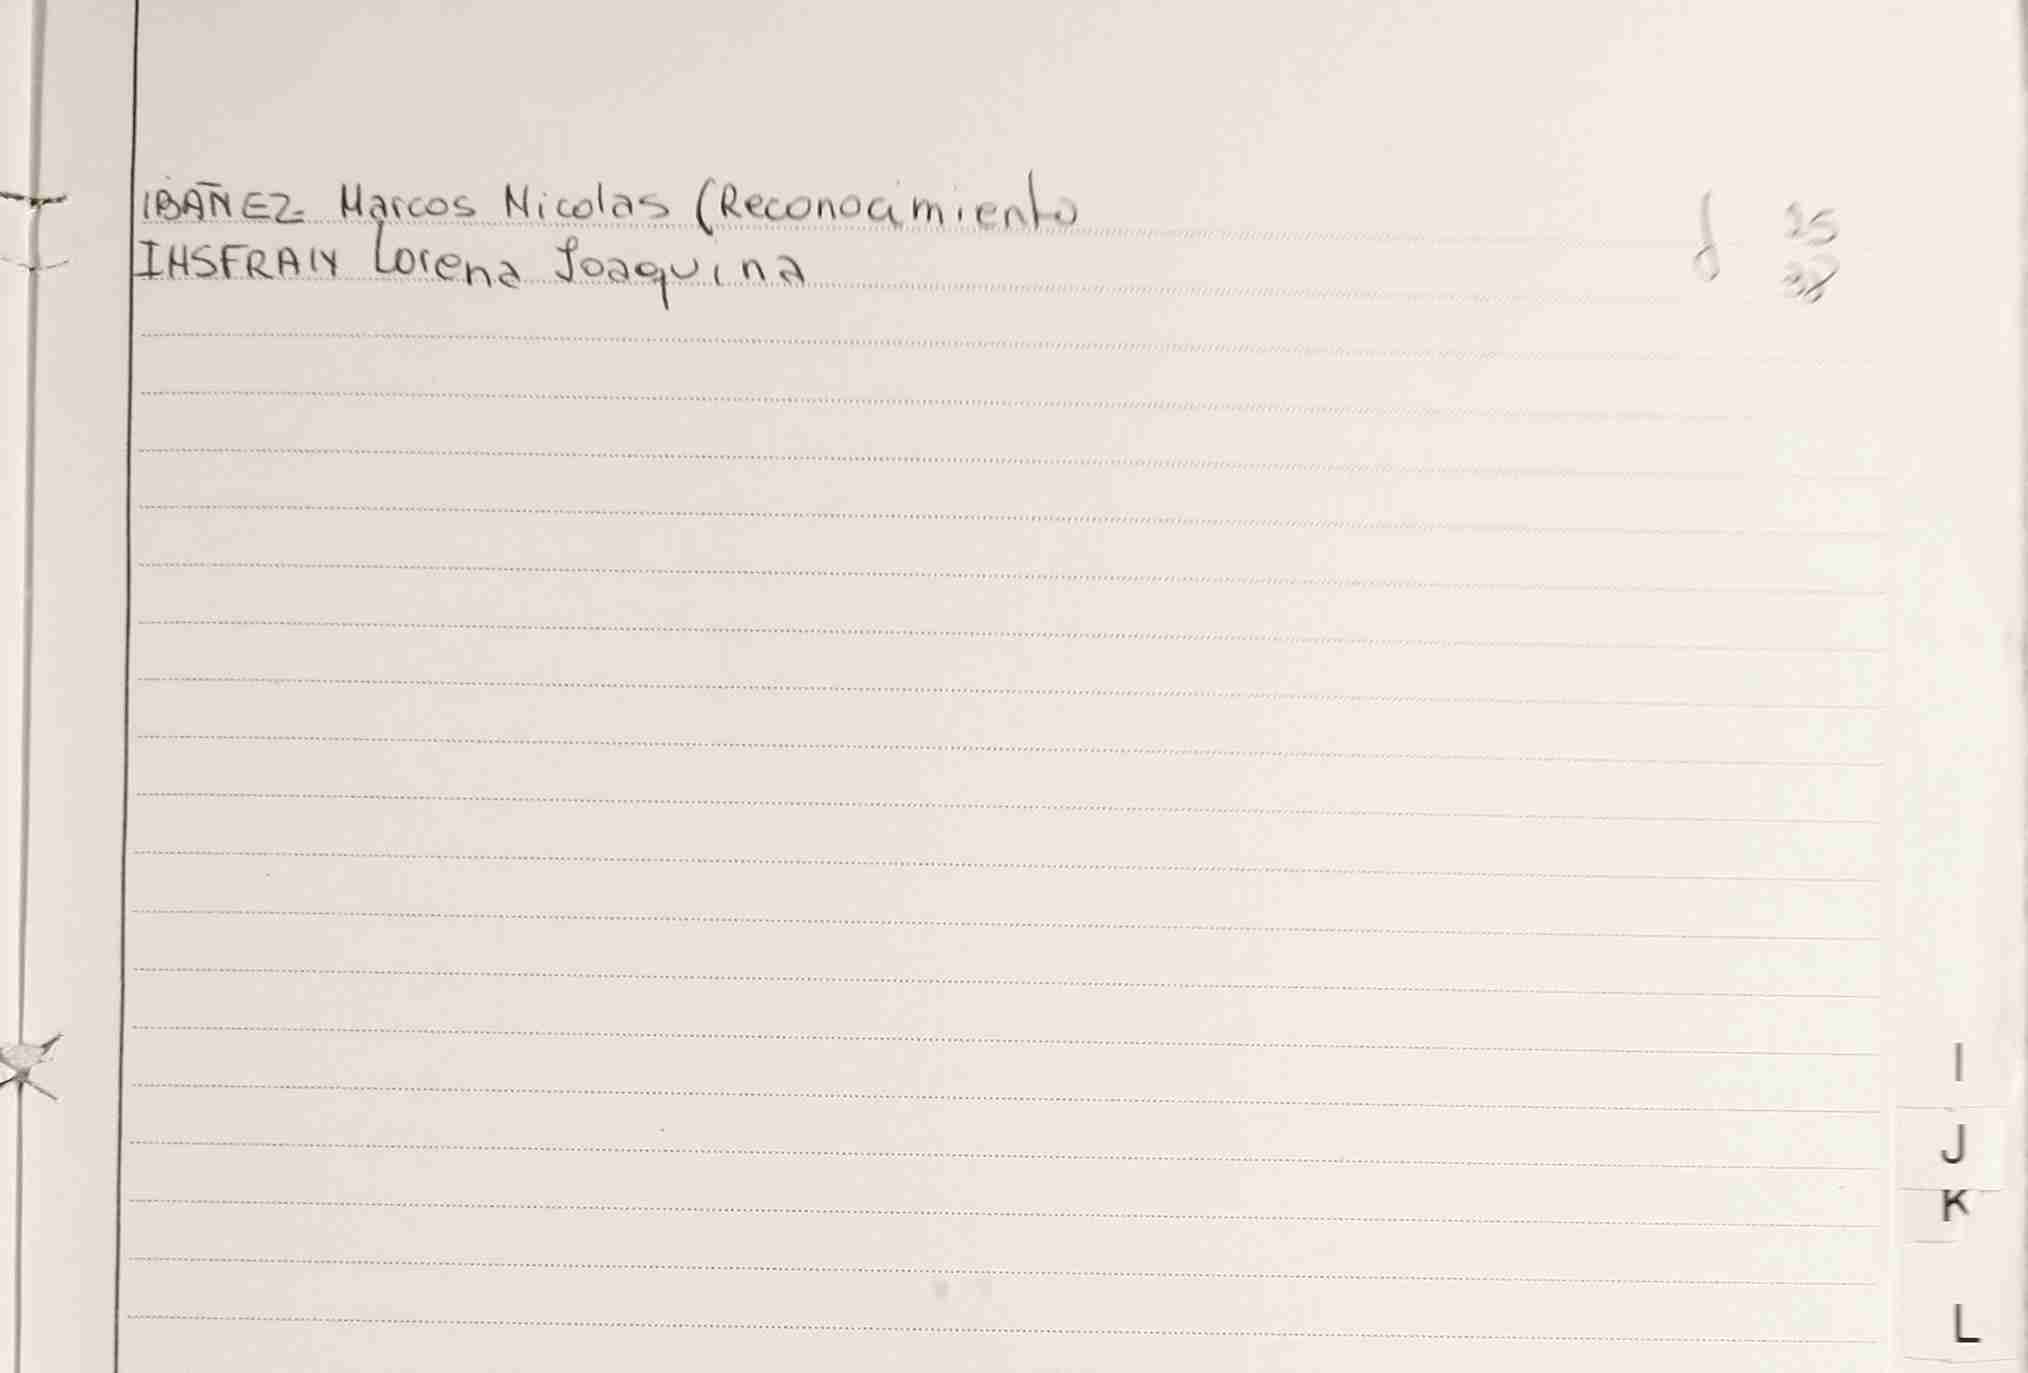 IBAÑEZ Marcos Nicolas (Reconocimiento
INSFRAIN Lorena Joaquina
25
I
J
K
L